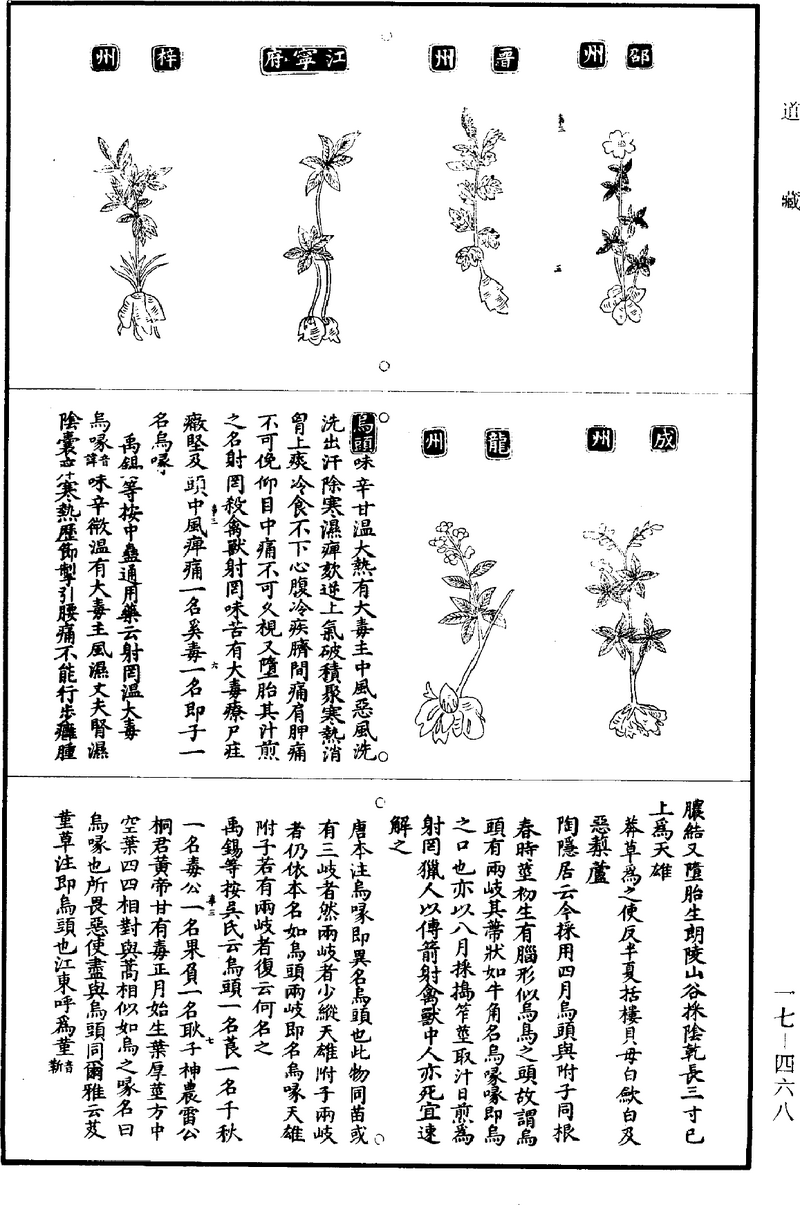 道藏
邵州
晋州
江寧府
梓州
成州
龍州
烏頭味辛甘溫大熱有大毒主中風惡風洗
洗出汗除寒濕痺欬逆上氣破積聚寒熱消
胷上痰冷食不下心腹冷疾臍間痛肩胛痛
不可俛仰目中痛不可久視又墮胎其汁煎
之名射罔殺禽獸射罔味苦有大毒療尸疰
癥堅及頭中風痺痛一名奚毒一名即子一
名烏喙
禹錫等按中蠱通用藥云射罔溫大毒
烏喙音諱味辛微溫有大毒主風濕丈夫腎濕
陰囊痒寒熱歷節掣引腰痛不能行步癰腫
膿結又墮胎生朗陵山谷採陰乾長三寸已
上爲天雄
莽草爲之使反半夏栝樓貝母白斂白及
惡藜蘆
陶隱居云今採用四月烏頭與附子同根
春時莖初生有腦形似烏鳥之頭故謂烏
頭有兩岐其蒂狀如牛角名烏喙喙即烏
之口也亦以八月採搗笮莖取汁日煎為
射罔獵人以傅箭射禽獸中人亦死宜速
解之
唐本注烏喙即異名烏頭也此物同苗或
有三岐者然兩岐者少縱天雄附子兩岐
者仍依本名如烏頭兩岐即名烏喙天雄
附子若有兩岐者復云何名之
禹錫等按吳氏云烏頭一名茛一名千秋
一名毒公一名果負一名耿子神農雷公
桐君黃帝甘有毒正月始生葉厚莖方中
空葉四四相對與蒿相似如烏之喙名曰
烏喙也所畏惡使盡與烏頭同爾雅云芨
堇草注即烏頭也江東呼爲堇音靳
一七—四六八